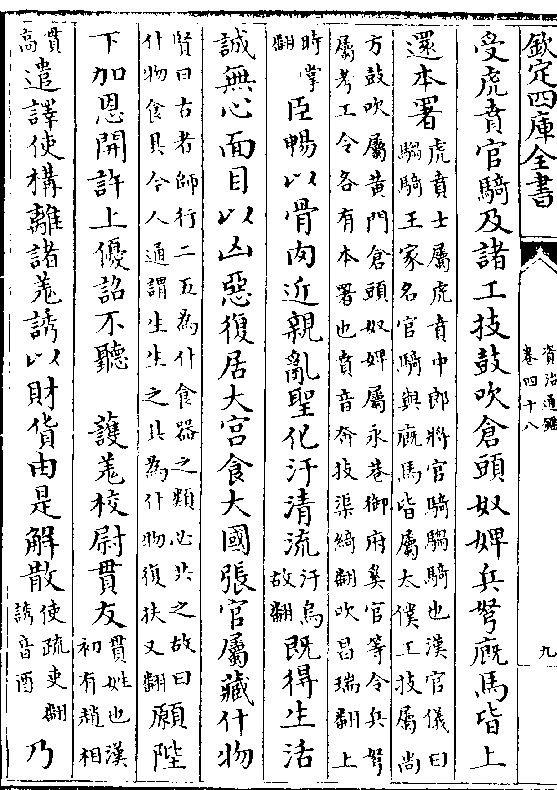 欽定四庫全書
資治通鑑
卷四十八
九
受虎賁官騎及諸工技鼓吹倉頭奴婢兵弩廐馬皆上
還本署
虎賁士屬虎賁中郎將官騎騶騎也漢官儀曰
騶騎王家名官騎與廐馬皆屬太僕工技屬尚
方鼓吹屬黃門倉頭奴婢屬永巷御府奚官等令兵弩
屬考工令各有本署也賁音奔技渠綺翻吹昌瑞翻上
時掌
翻
臣暢以骨肉近親亂聖化汙清流
汙烏
故翻
既得生活
誠無心面目以凶惡復居大宮食大國張官屬藏什物
賢曰古者師行二五為什食器之類必共之故曰
什物食具今人通謂生生之具為什物復扶又翻
願陛
下加恩開許上優詔不聽 護羌校尉貫友
貫姓也漢
初有趙相
貫
高
遣譯使構離諸羌誘以財貨由是解散
使疏吏翻
誘音酉
乃